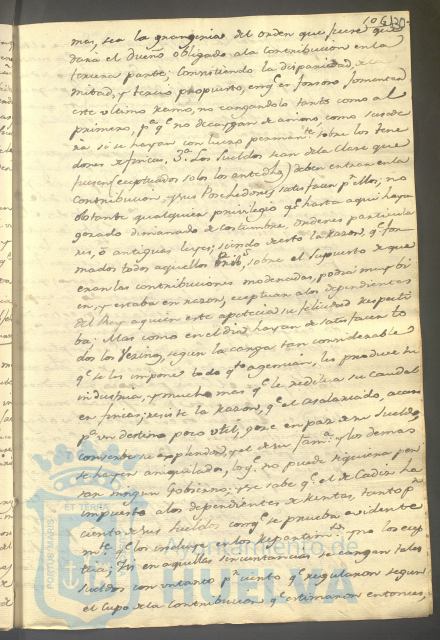 mas, sea la grangeria del orden que fuere que
daria el dueño obligado ala contribucion en la
tercera parte; consistiendo la disparidad,
mitad, y tercio propuesto, en q.e es forzoso fomentar
este ultimo ramo, no cargandolo tanto como al
primero, p.a q.e no decaygan de animo, como sucede
ra si se hayan con lucro permanente sobre los tene
dores de fincas. 3.a Los sueldos sean de la clase que
fuesen (exceptuados solos los antedhos) deben entrar en la
contribucion, y sus Poshedores satisfacer p.r ellos, no
obstante qualquier privilegio q.e hasta aqui hayan
gozado dimanado de costumbre, ordenes particula
res, ó antiguas leyes; siendo de esto la razon, q.e for
mados todos aquellos Privil.s sobre el supuesto de que
eran las contribuciones moderadas, podria muy bi
en, y estaba en razon, exceptuar alos dependientes
del Rey aquien este apetecia su felicidad respecti
ba; Mas como en el dia hayan de satisfacer to
dos los Vezinos, segun la carga tan considerable
q.e se les impone todo q.to agencian, les produce su
industria, y mucho mas q.e le reditua su caudal
en fincas; resiste la razon, q.e el asalariado, acaso
p.r un destino poco util, goze en paz de su sueldo,
conserbe su esplendor, y el de su fam.a y los demas
se hayen aniquilados, lo q.e no puede siquiera pen
sar ningun Gobierno; y se sabe q.e el de Cadiz ha
impuesto alos dependientes de Rentas, tanto p.r
ciento de sus sueldos con q.e se prueba evidente
m.te q.e los incluye en los Repartim.tos, y no los excep
tua; Y en aquellas circunstancias se cargan tales
sueldos con un tanto p.r ciento q.e regularon segun
el cupo de la contribucion q.e estimaron entonces
ET TERRE
PORTUS MARIS
Ayuntamiento de
HUELVA